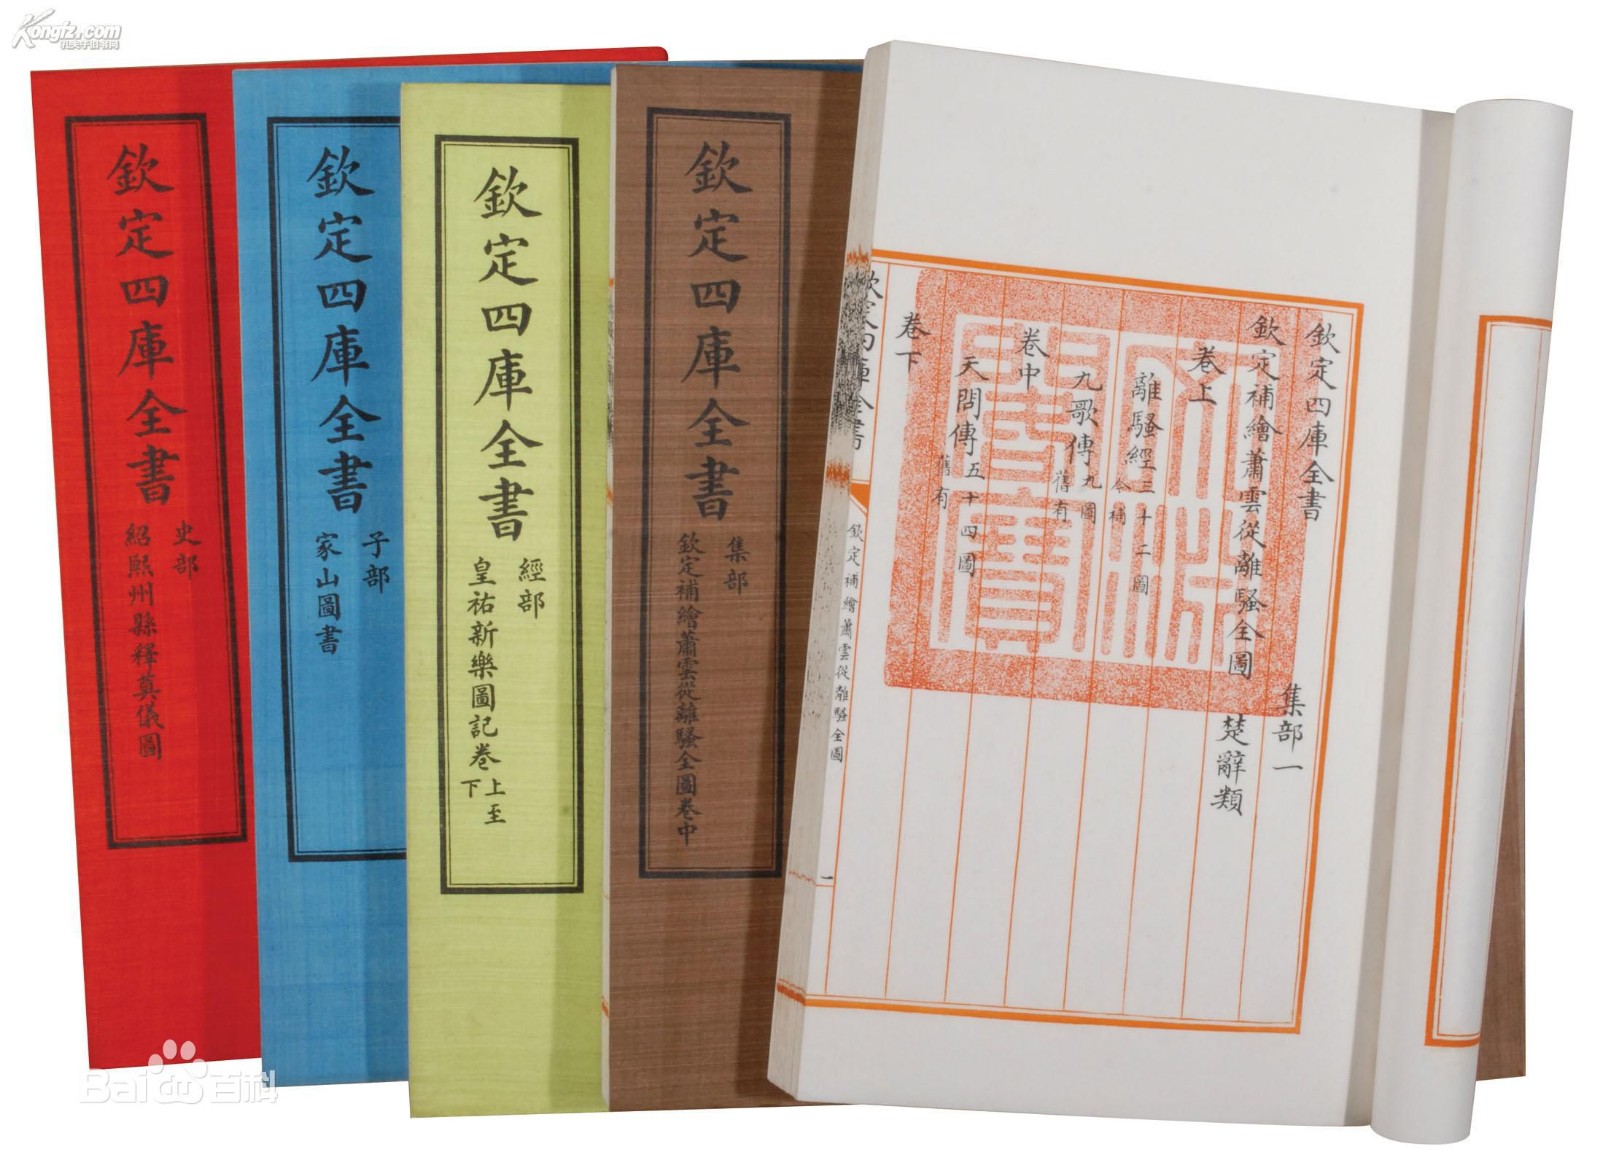 Kongfz.com
孔夫子旧书网
欽定四庫全書
史部
紹熙州縣釋奠儀圖
欽定四庫全書
子部
家山圖書
欽定四庫全書
經部
皇祐新樂圖記卷上至下
欽定四庫全書
集部
欽定補繪蕭雲從離騷全圖卷中
欽定四庫全書
集部一
欽定補繪蕭雲從離騷全圖
楚辭類
卷上
離騷經三十二圖今補
九歌傳九圖舊有
卷中
天問傳五十四圖舊有
卷下
欽定四庫全書
欽定補繪蕭雲從離騷全圖
一
Baidu百科